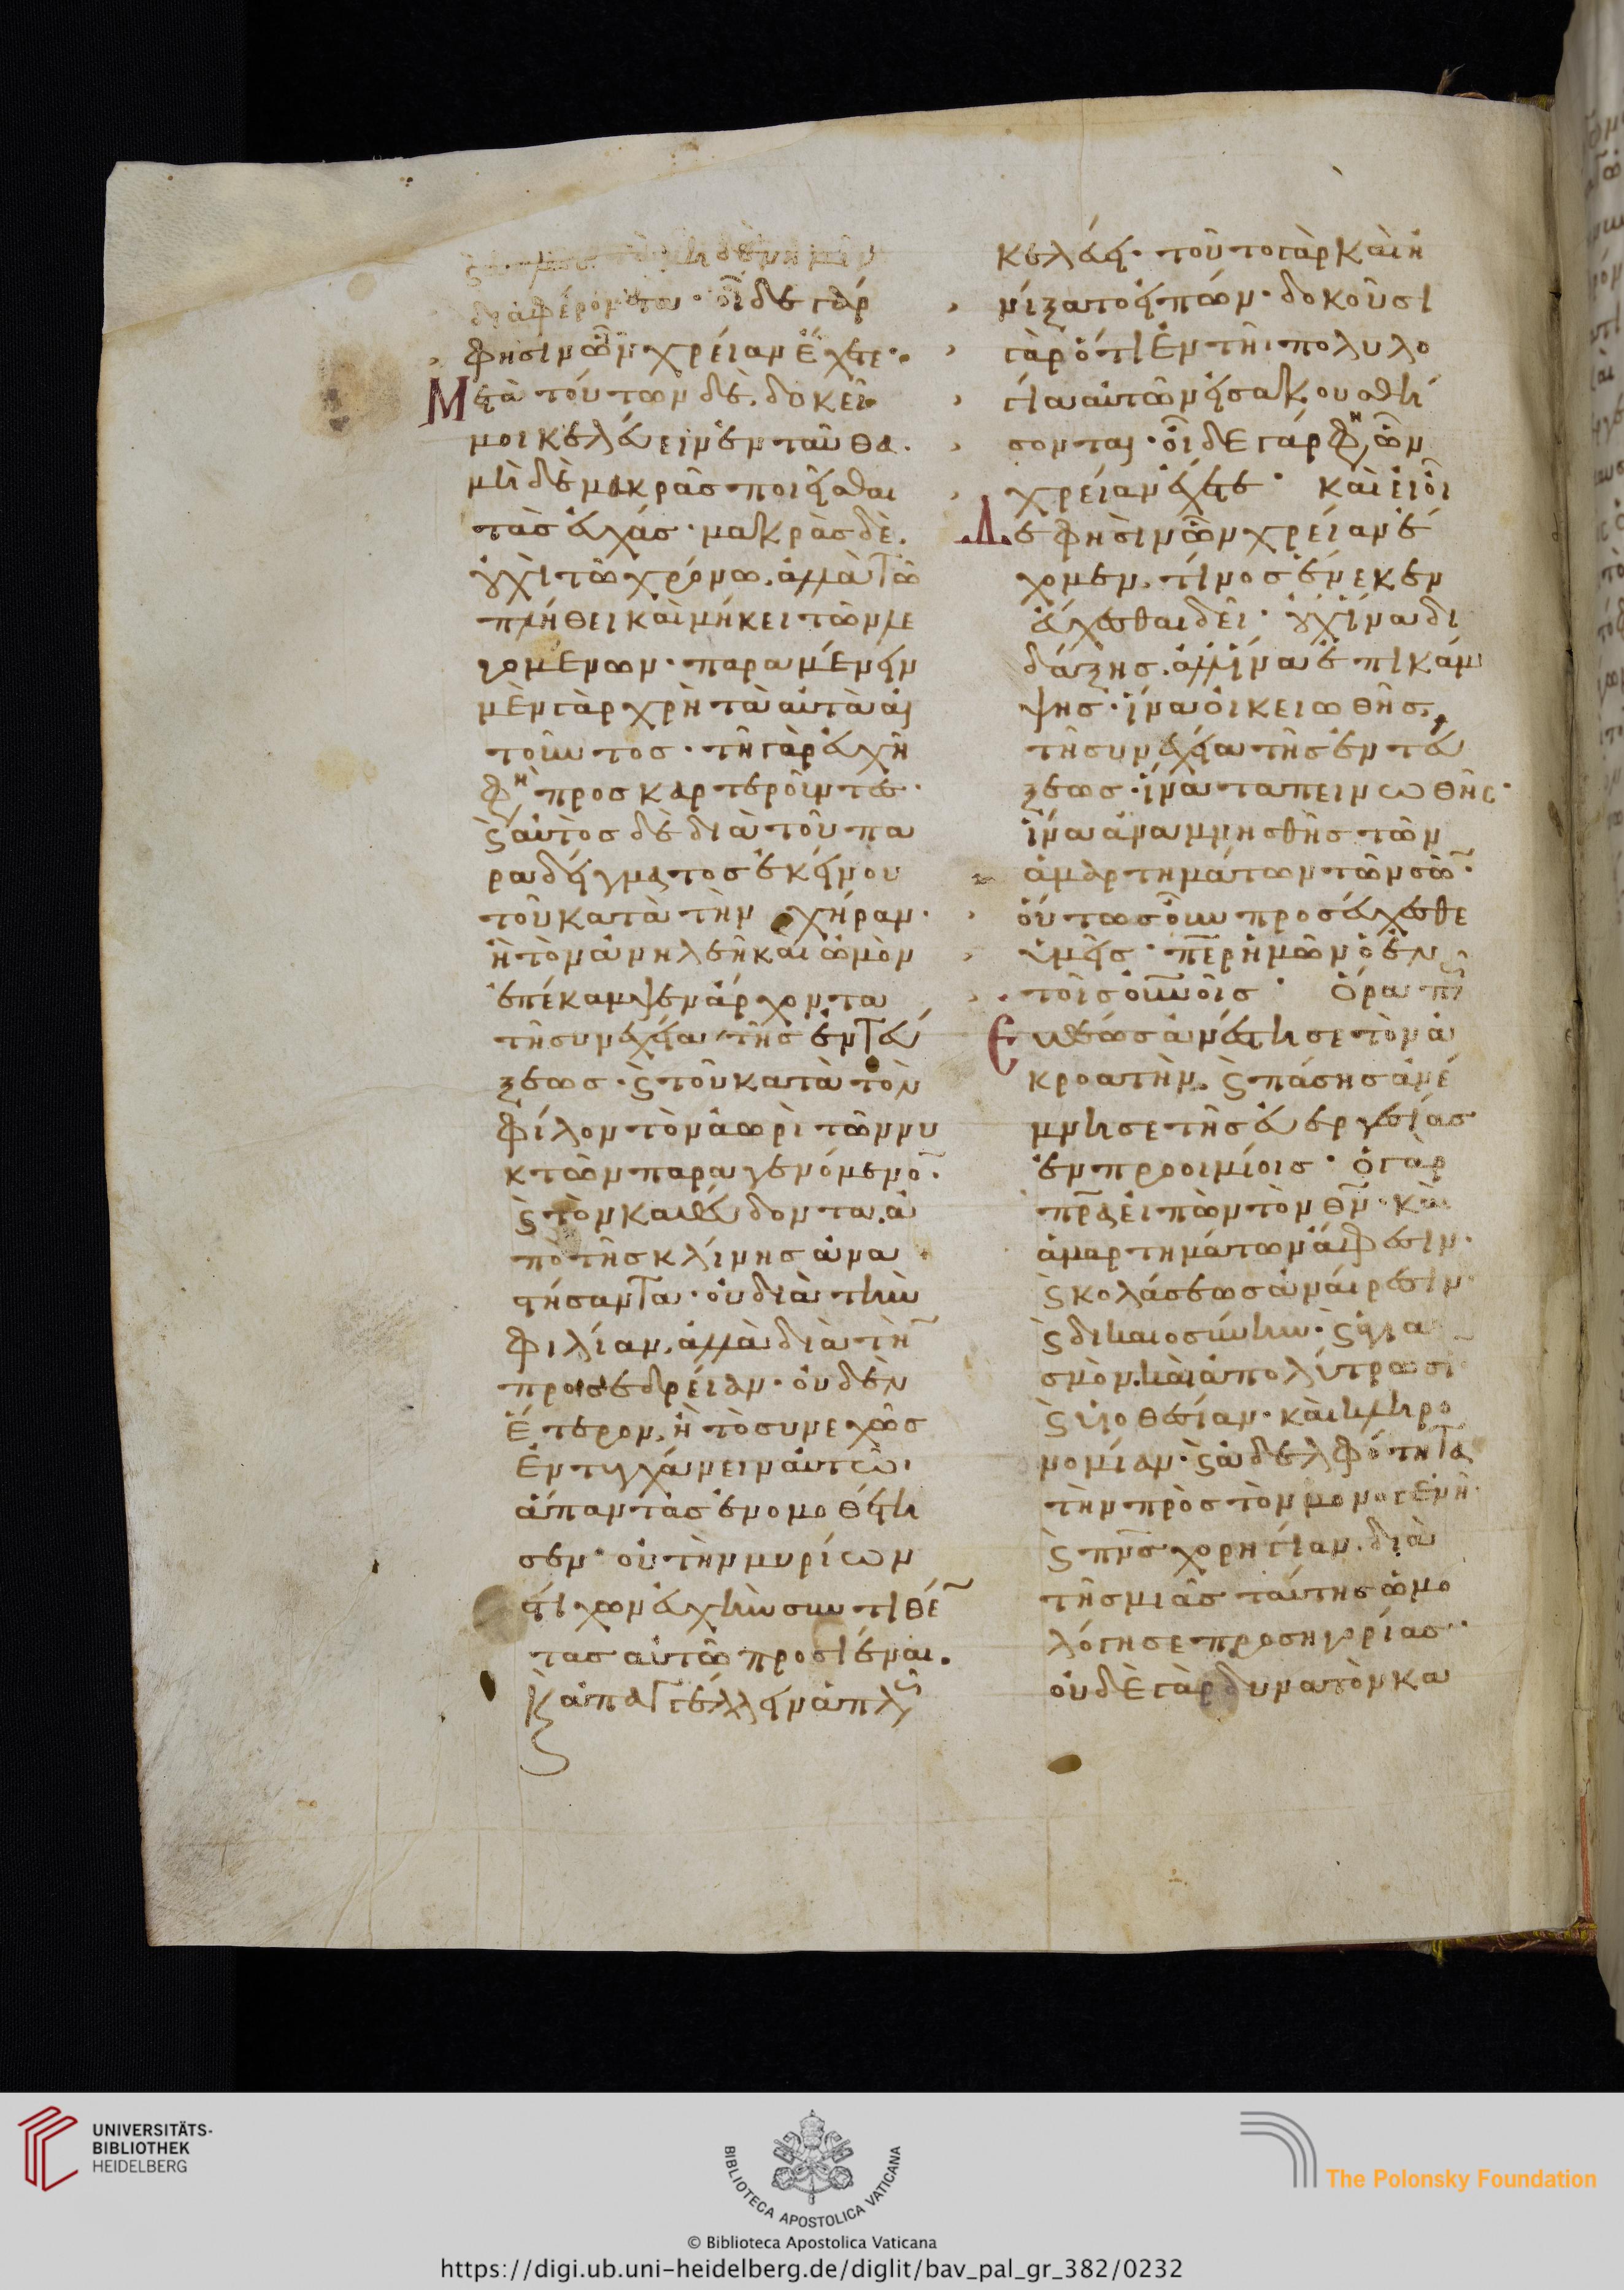 διαφερόντων· οἶδε γὰρ
φησὶν ὧν χρείαν ἔχετε·
Μετὰ τούτων δὲ, δοκεῖ
μοι κελεύειν ἐνταῦθα·
μηδὲ μακρὰς ποιεῖσθαι
τὰς εὐχάς· μακρὰς δὲ.
οὐχὶ τῶ χρόνω. ἀλλὰ τῶ
πλήθει καὶ μήκει τῶν λε
γομένων· παραμένειν
μὲν γὰρ χρὴ τὰ αὐτὰ αἰ
τοῦντας· τῆ γὰρ εὐχῆ
φη προσκαρτεροῦντες·
ϛ αὐτὸς δὲ διὰ τοῦ πα
ραδείγματος ἐκείνου
τοῦ κατὰ τὴν χήραν·
ἣ τὸν ἀνηλεῆ καὶ ὠμὸν
ἐπέκαμψεν ἄρχοντα
τῆ συνεχεία τῆς ἐντεύ
ξεως· ϛ τοῦ κατὰ τὸν
φίλον τὸν ἀωρὶ τῶν νυ
κτῶν παραγενόμενο̄·
ϛ τὸν καθεύδοντα. ἀ
πὸ τῆς κλίνης ἀνα
στήσαντα· οὐ διὰ τὴν
φιλίαν. ἀλλὰ διὰ τὴ̄
προσεδρείαν· οὐδὲν
ἕτερον, ἢ τὸ συνεχῶς
ἐντυγχάνειν αὐτῶ
ἅπαντας ἐνομοθέτη
σεν· οὐ τὴν μυρίων
στίχων εὐχὴν συντιθέ̄
τας αὐτῶ προσιέναι.
κ ἀπαγγέλλειν ἁπλῶς
κελεύει· τοῦτο γὰρ καὶ ἠ
νίξατο εἰπὼν· δοκοῦσι
γὰρ ὅτι ἐν τῆ πολυλο
γία αὐτῶν εἰσακουσθή
σονται· οἶδε γάρ φη ὧν
χρείαν ἔχετε· καὶ εἰ οἶ
δε φησὶν ὧν χρείαν ἔ
χομεν, τίνος ἕνεκεν
εὔχεσθαι δεῖ· οὐχ ἵνα δι
δάξης. ἀλλ ἵνα ἐπικάμ
ψης· ἵνα οἰκειωθῆς
τῆ συνεχεία τῆς ἐντεύ
ξεως· ἵνα ταπεινωθῆς·
ἵνα ἀναμνησθῆς τῶν
ἁμαρτημάτων τῶν σῶ̄·
οὕτως οὖν προσεύχεσθε
ὑμεῖς· π̄ερ ἡμῶν ὁ ἐν
τοῖς οὐ̄νοῖς· Ὅρα π̄
Εὐθέως ἀνέστησε τὸν ἀ
κροατὴν. ϛ πάσης ἀνέ
μνησε τῆς εὐεργεσίας
ἐν προοιμίοις· ὁ γὰρ
π̄ρα εἰπὼν τὸν θ̄ν· καὶ
ἁμαρτημάτων ἄφεσιν·
ϛ κολάσεως ἀναίρεσιν·
ϛ δικαιοσύνην· ϛ ἁγια
σμὸν. καὶ ἀπολύτρωσι
ϛ υἱοθεσίαν· καὶ κληρο
νομίαν· ϛ ἀδελφότητα
τὴν πρὸς τὸν μονογενῆ·
ϛ π̄νς χορηγίαν. διὰ
τῆς μιᾶς ταύτης ὡμο
λόγησε προσηγορίας·
οὐδὲ γὰρ δυνατὸν κα
UNIVERSITÄTS-
BIBLIOTHEK
HEIDELBERG
BIBLIOTECA APOSTOLICA VATICANA
© Biblioteca Apostolica Vaticana
The Polonsky Foundation
https://digi.ub.uni-heidelberg.de/diglit/bav_pal_gr_382/0232